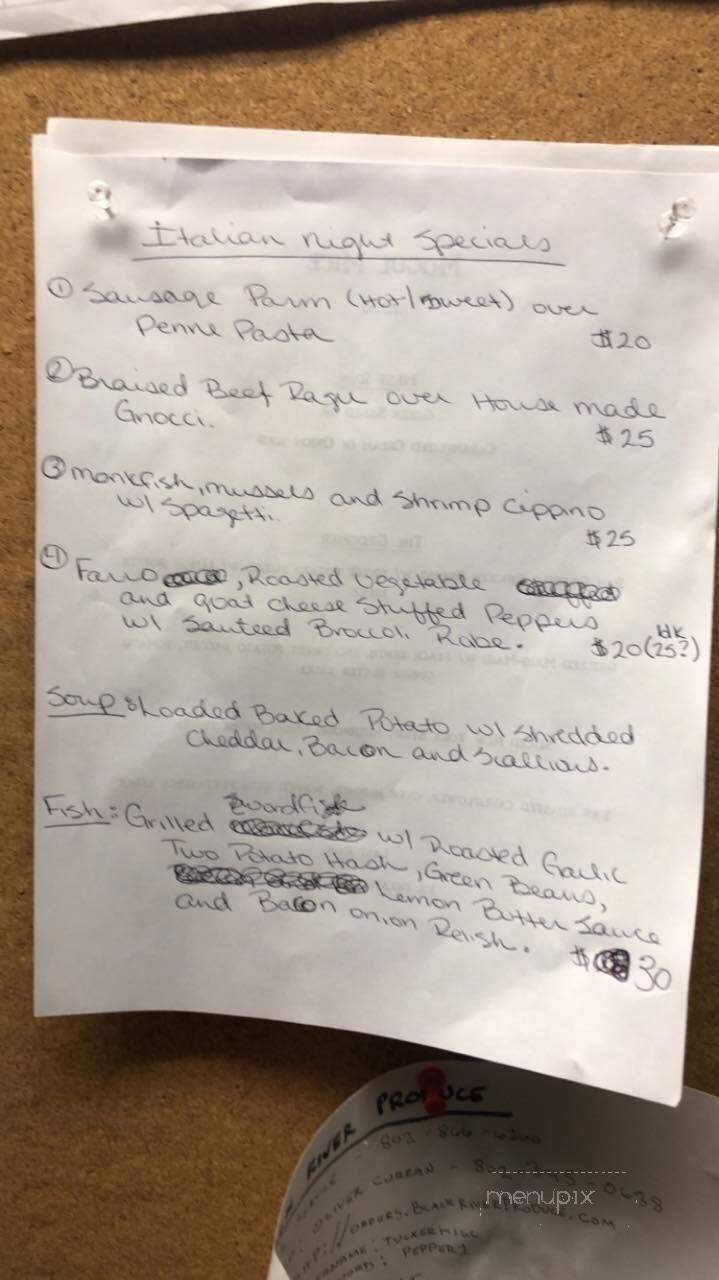 Italian night Specials
① Sausage Parm (Hot/Sweet) over
Penne Pasta
$20
② Braised Beef Ragu over House made
Gnocci.
$25
③ monkfish, mussels and Shrimp Cippino
w/ Spagetti.
$25
④ Farro, Roasted Vegetable
and goat cheese Stuffed Peppers
w/ Sauteed Broccoli Rabe.
$20(25?)
Soup: Loaded Baked Potato w/ shredded
Cheddar, Bacon and Scallions.
Fish: Grilled Swordfish w/ Roasted Garlic
Two Potato Hash, Green Beans,
Lemon Butter Sauce
and Bacon onion Relish.
$30
RIVER PRODUCE
OLIVER CURRAN
ORDERS.BLACKRIVERPRODUCE.COM
: TUCKERHILL
: PEPPER1
menupix